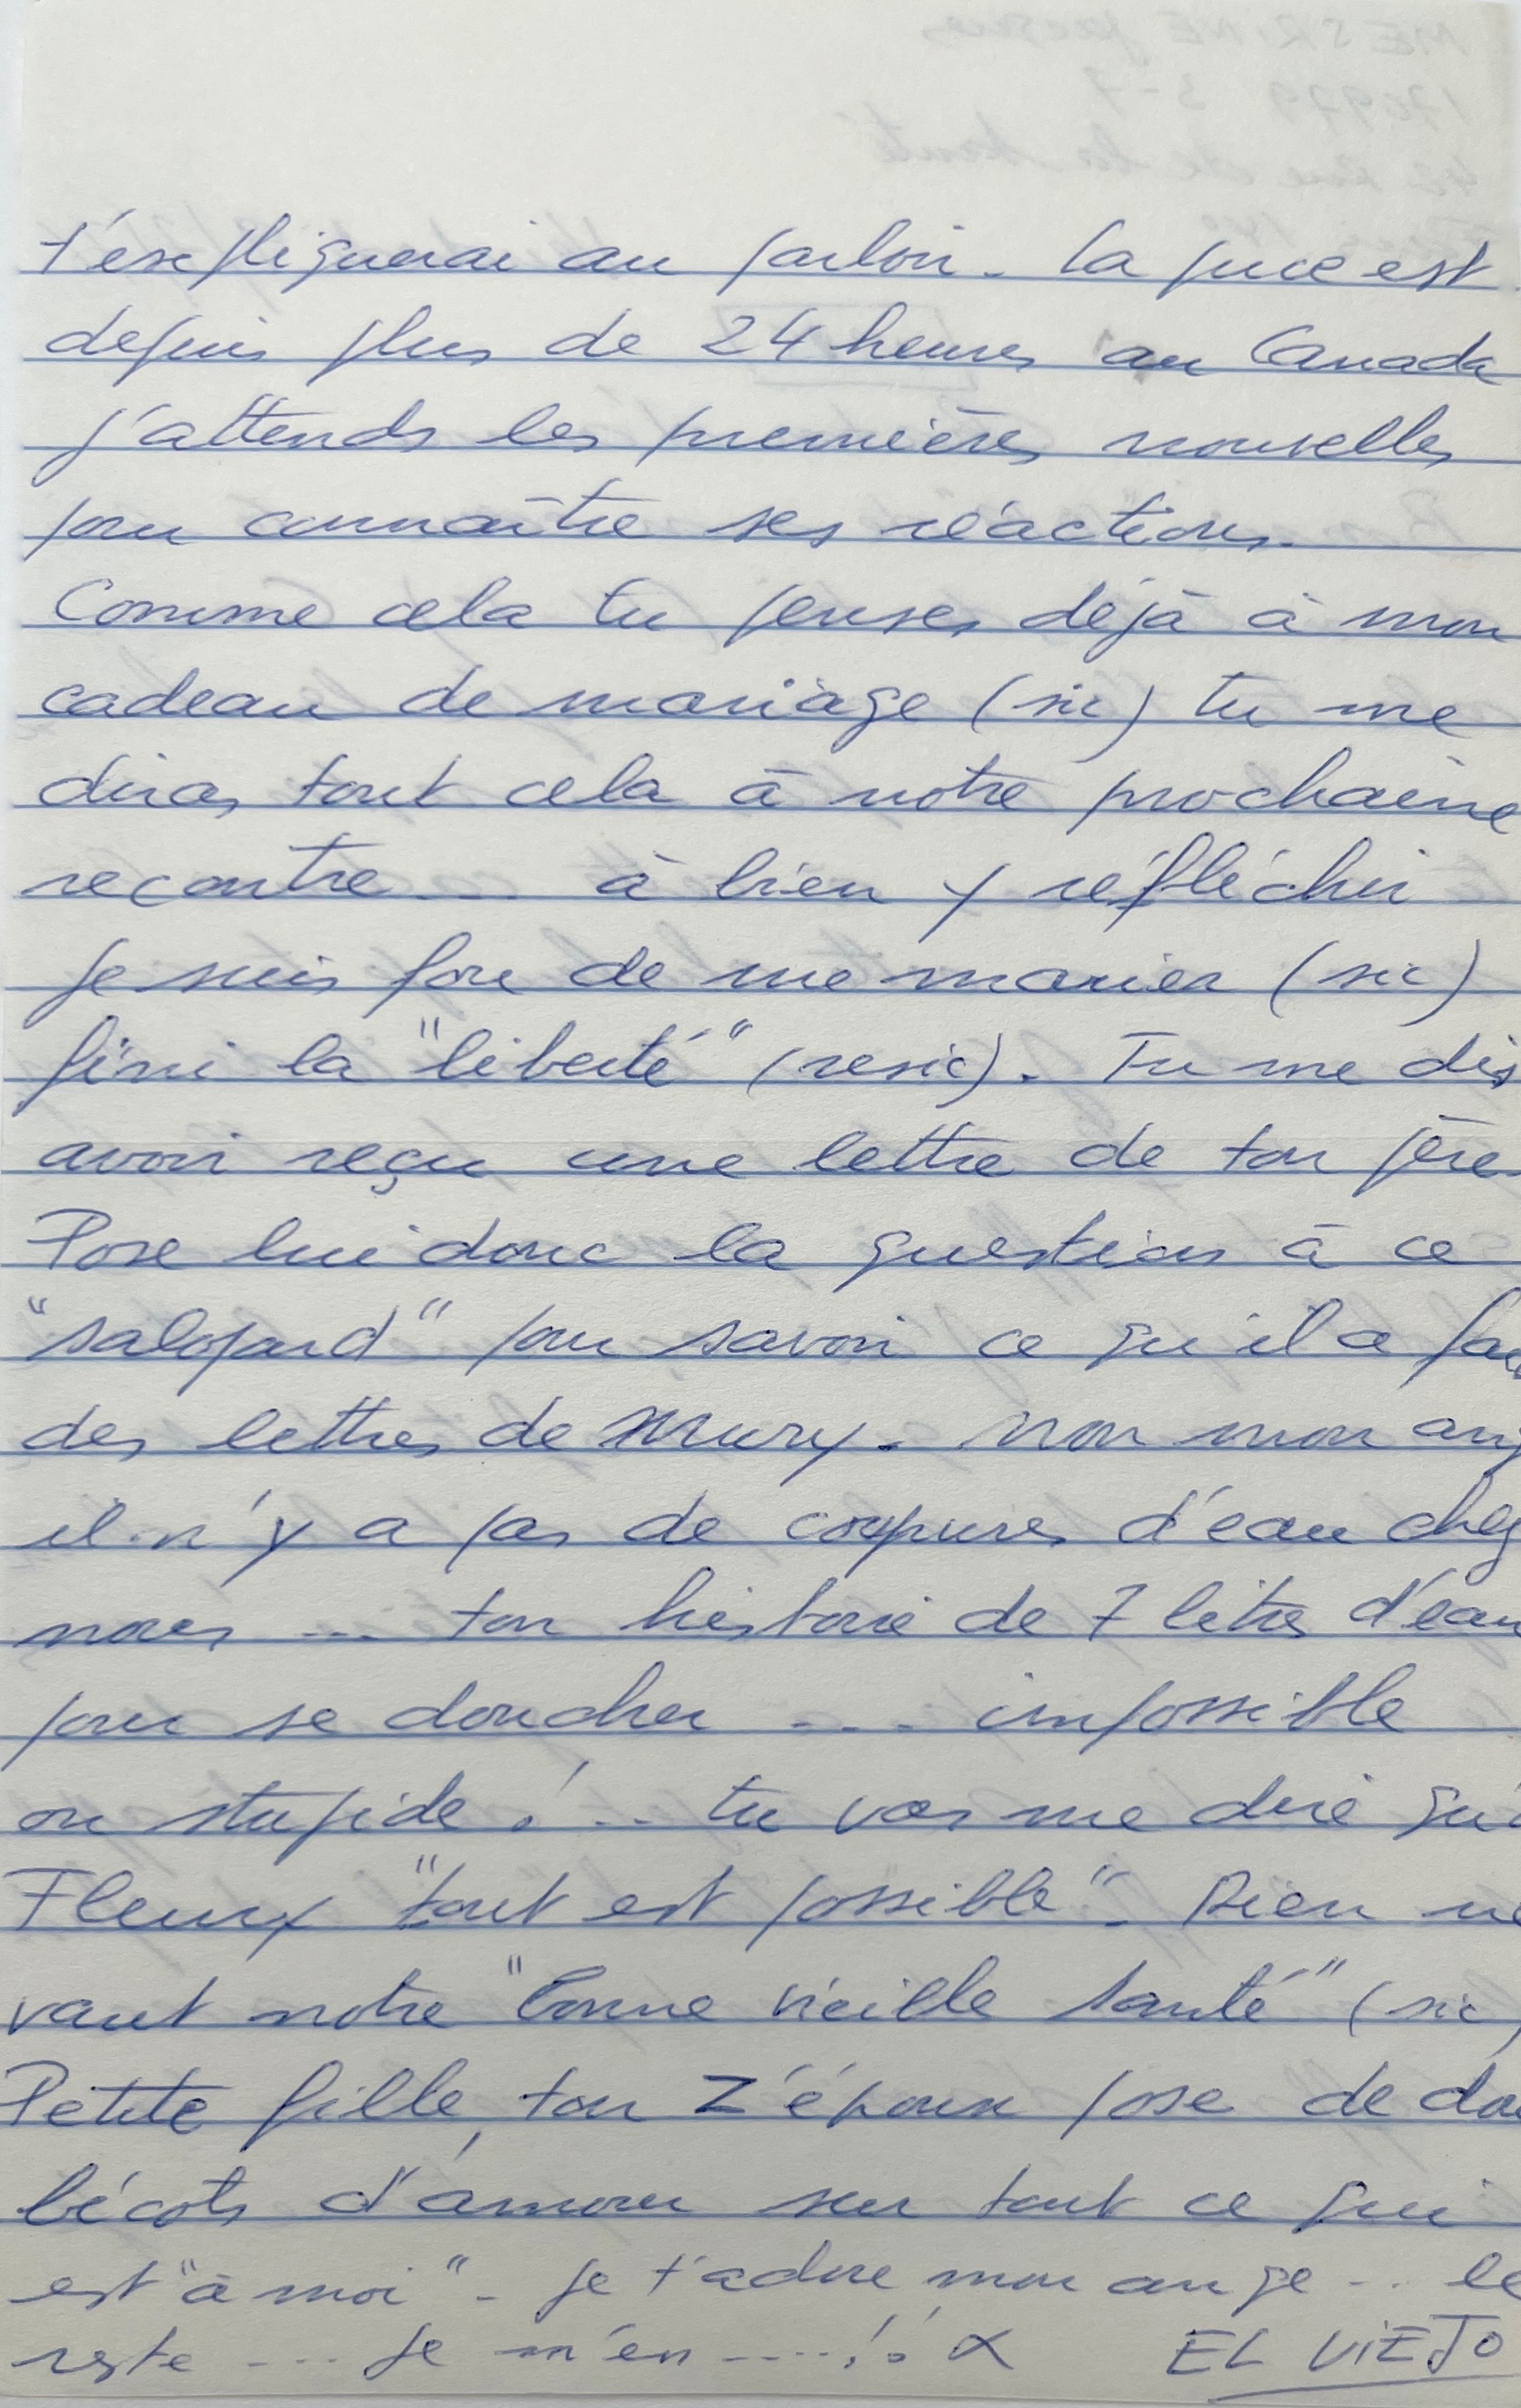 MESRINE Jacques
170979 3-7
42 Rue de la Santé
t'expliquerai au parloir. La puce est
depuis plus de 24 heures au Canada
j'attends les premières nouvelles
pour connaître ses réactions.
Comme cela tu penses déjà à mon
cadeau de mariage (sic) tu me
diras tout cela à notre prochaine
recontre... à bien y réfléchir
je suis fou de me marier (sic)
fini la "liberté" (resic). Tu me dis
avoir reçu une lettre de ton père
Pose lui donc la question à ce
"salopard" pour savoir ce qu'il a
des lettres de Mury. Non mon
il n'y a pas de coupures d'eau chez
nous ... ton histoire de 7 litres d'eau
pour se doucher .... impossible
ou stupide ! .. tu vas me dire
Fleury "tout est possible". Rien ne
vaut notre "bonne vieille Santé" (sic)
Petite fille, ton Z'époux pose de
bécots d'amour sur tout ce qui
est "à moi" - Je t'adore mon ange ... le
reste .... je m'en ....!!
EL VIEJO